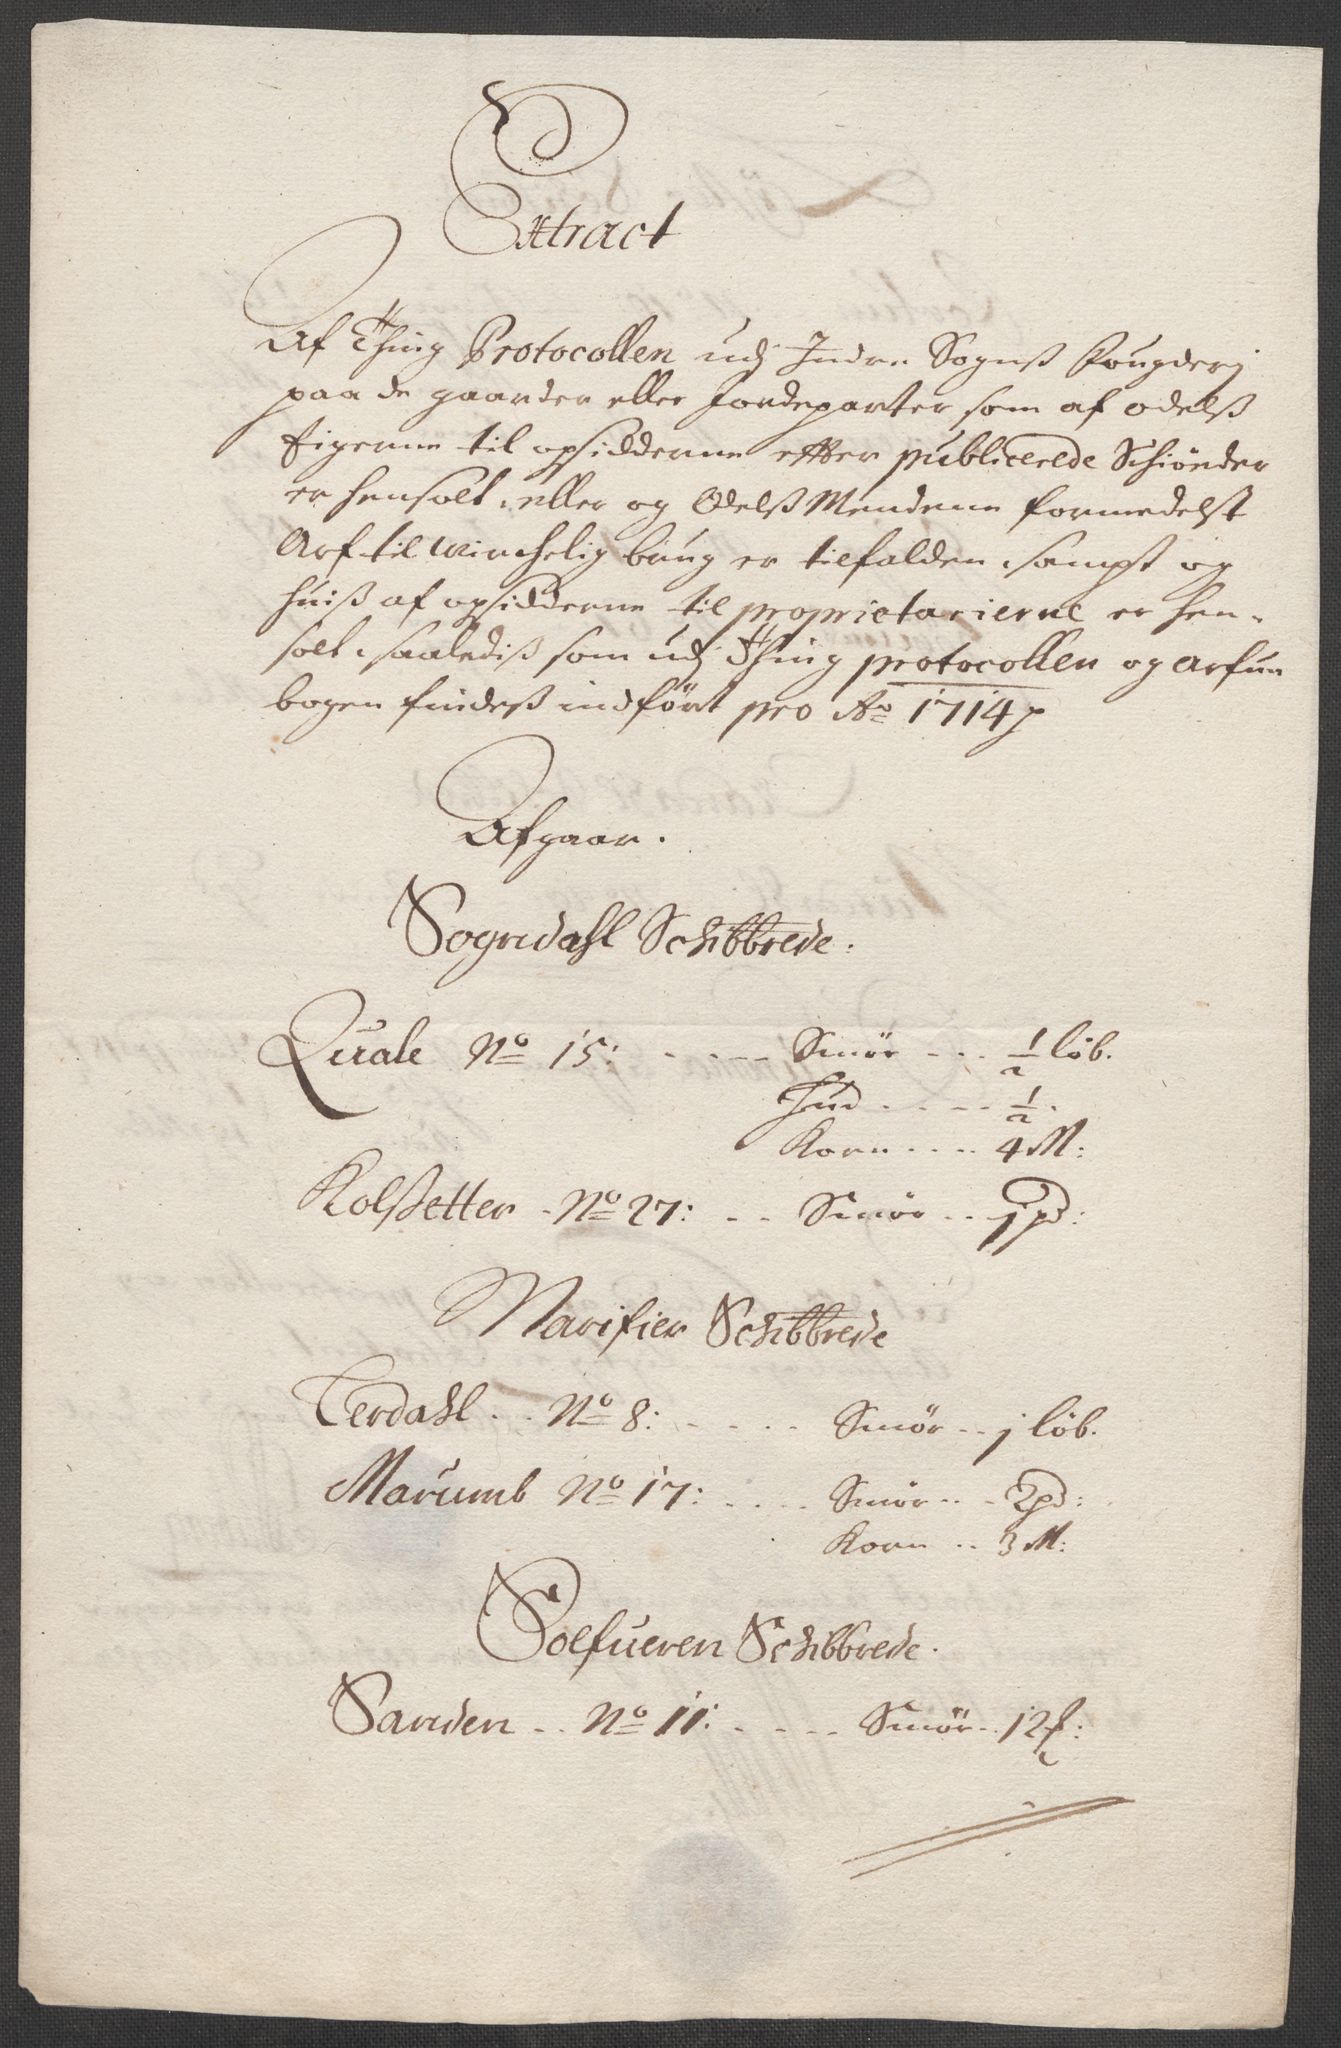 Extract
Af Thing Protocollen udj Indre Sognß Fougderj
paa de gaarder eller Jordeparter som af odelß
Eigerne til opsidderne effter publicerede Schiönder
er hensolt, eller og OdelßMendene formedelst
Arf til wirchelig brug er tilfalden, sampt og
huiß af opsidderne til proprietarierne er hen-
solt, saalediß som udj Thing protocollen og
bogen findeß indført pro Ao 1714
Afgaar.
Sogndahl Schibbrede.
Quale No 15: - - - - Smör - - - 1/2 löb.
Hud - - - - 1/2.
Korn - - - - 4 M:
Kolßetter - No 27: - - Smör - - 1 pd:
Marifier Schibbrede
Cerdahl - - No 8: - - - - Smör - - j löb.
Marumb No 17: - - - - Smör - - - 2 pd:
Korn - - 3 M:
Soelfueren Schibbrede.
Sanden - - No 11: - - - - Smör - - 12